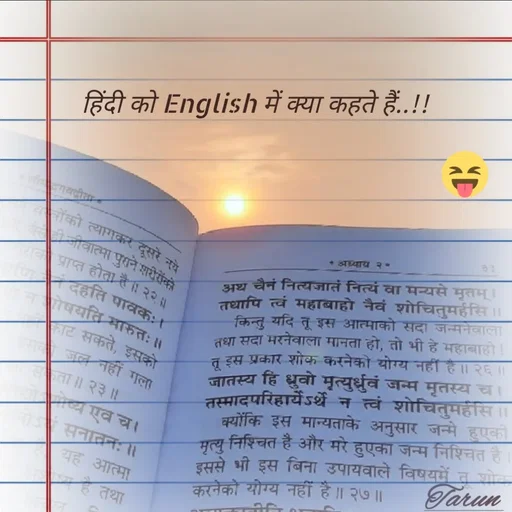 हिंदी को English में क्या कहते हैं..!!
त्यागकर दूसरे नये
जीवात्मा पुराने शरीरोंको
प्राप्त होता है॥ २२॥
दहति पावकः।
न शोषयति मारुतः॥
काट सकते, इसको
जल नहीं गला
सकता॥ २३॥
एव च।
सनातनः॥
यह आत्मा
है तथा
* अध्याय २ *
अथ चैनं नित्यजातं नित्यं वा मन्यसे मृतम्।
तथापि त्वं महाबाहो नैवं शोचितुमर्हसि॥
किन्तु यदि तू इस आत्माको सदा जन्मनेवाला
तथा सदा मरनेवाला मानता हो, तो भी हे महाबाहो!
तू इस प्रकार शोक करनेको योग्य नहीं है॥ २६॥
जातस्य हि ध्रुवो मृत्युर्ध्रुवं जन्म मृतस्य च।
तस्मादपरिहार्येऽर्थे न त्वं शोचितुमर्हसि॥
क्योंकि इस मान्यताके अनुसार जन्मे हुएकी
मृत्यु निश्चित है और मरे हुएका जन्म निश्चित है।
इससे भी इस बिना उपायवाले विषयमें तू शोक
करनेको योग्य नहीं है॥ २७॥
Tarun